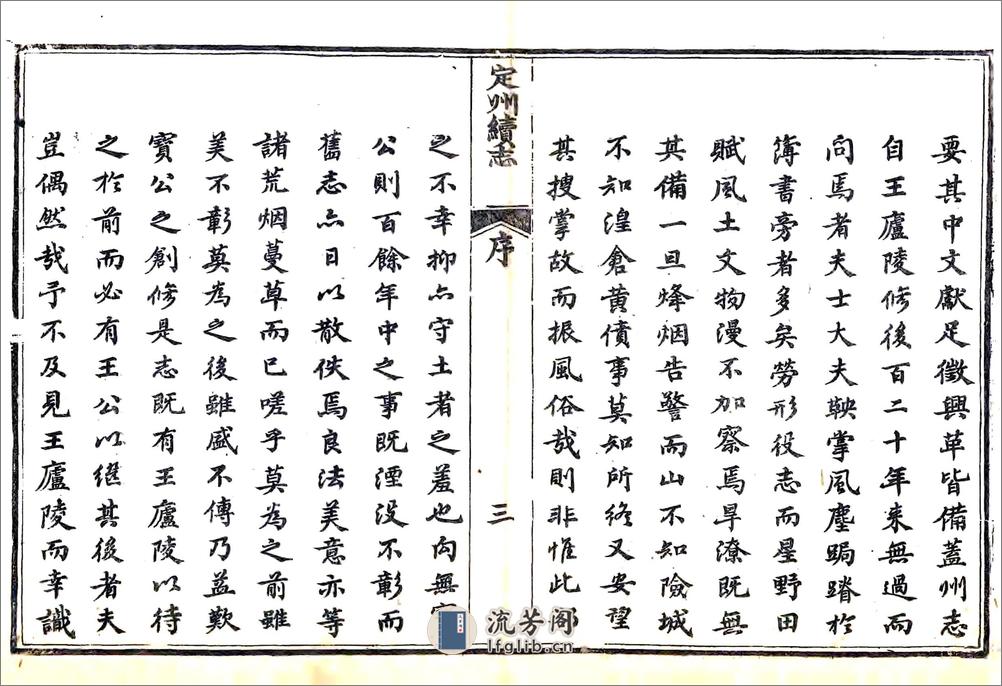 要其中文獻足徵興革皆備蓋州志
自王廬陵修後百二十年来無過而
问焉者夫士大夫鞅掌風塵跼蹐於
簿書旁者多矣勞形役志而星野田
賦風土文物漫不加察焉旱潦既無
其備一旦烽烟告警而山不知險城
不知湟倉黄僨事莫知所終又安望
其搜掌故而振風俗哉則非惟此邦
定州續志
序
三
之不幸抑亦守土者之羞也向無寶
公則百餘年中之事既湮没不彰而
舊志亦日以散佚焉良法美意亦等
諸荒烟蔓草而已嗟乎莫為之前雖
美不彰莫為之後雖盛不傳乃益歎
寶公之創修是志既有王廬陵以待
之於前而必有王公以继其後者夫
豈偶然哉予不及見王廬陵而幸識
流芳阁
lfglib.cn